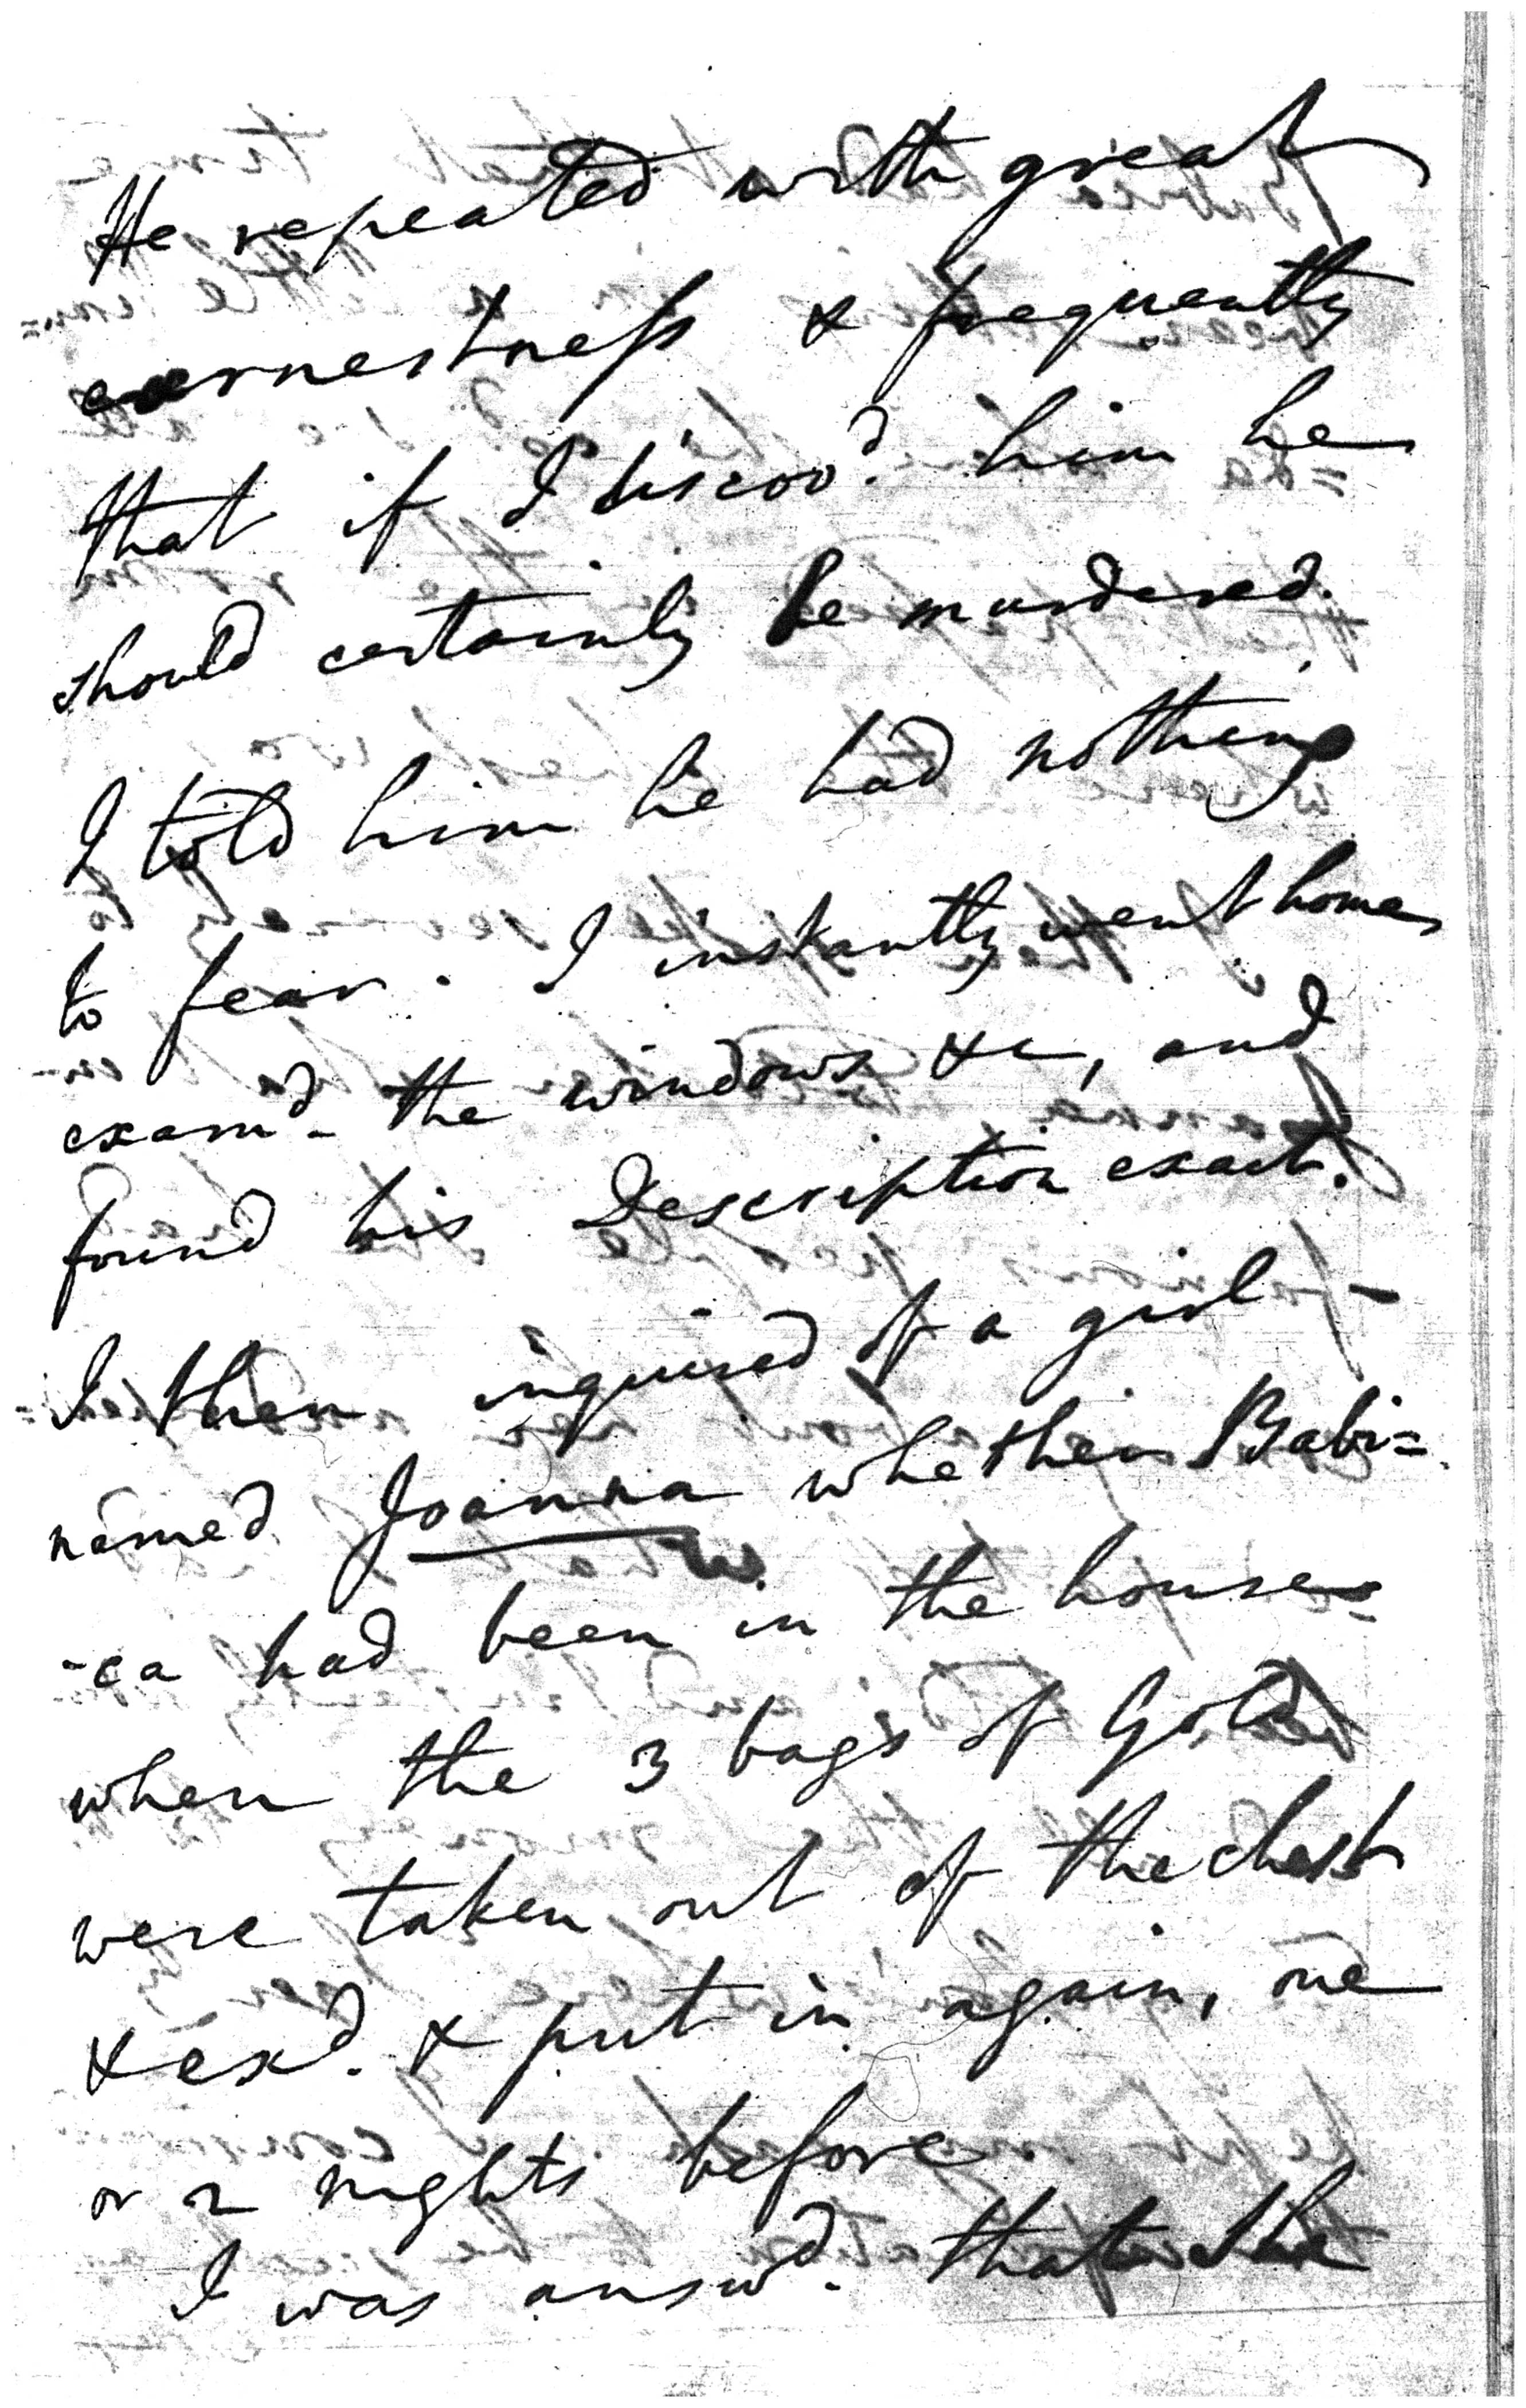 He repeated with great
earnestness & frequently
that if I discovd. him he
should certainly be murdered.
I told him he had nothing
to fear. I instantly went home
examd- the windows &c, and
found his Description exact.
I then inquired of a girl -
named Joanna whether Babi=
-ca had been in the house
when the 3 bags of Gold
were taken out of the chest
& exd. & put in again, one
or 2 nights before.
I was answd. that she